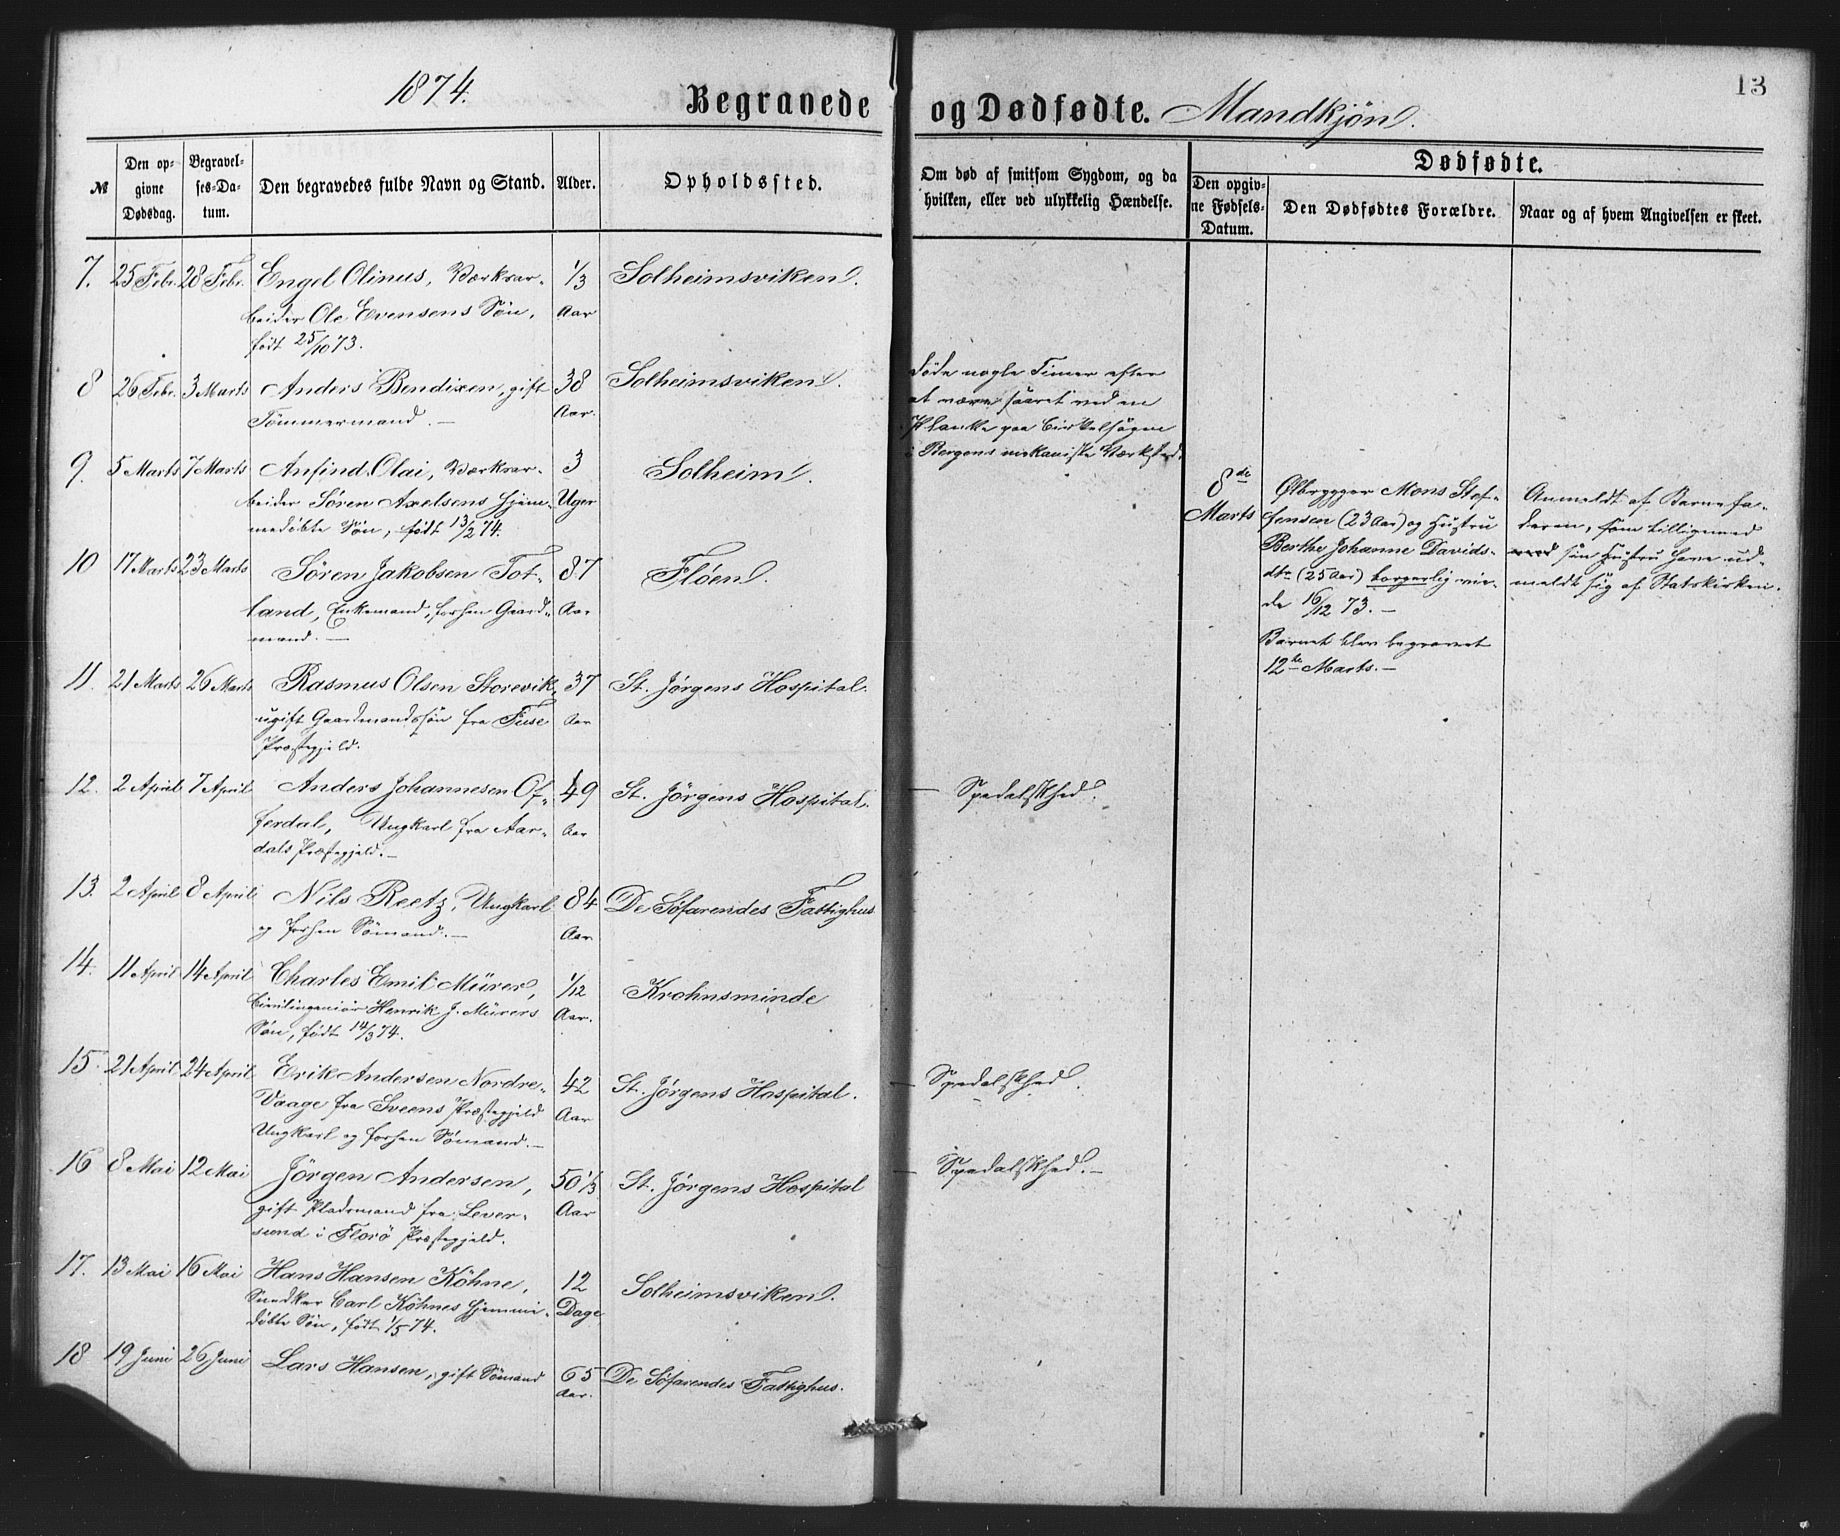 1874.
Begravede og Dødfødte. Mandkjøn.
13
№
Den op-
givne
Dødsdag.
Begravel-
ses-Da-
tum.
Den begravedes fulde Navn og Stand.
Alder.
Opholdssted.
Om død af smitsom Sygdom, og da
hvilken, eller ved ulykkelig Hændelse.
Dødfødte.
Den opgiv-
ne Fødsels-
Datum.
Den Dødfødtes Forældre.
Naar og af hvem Angivelsen er skeet.
7. 25 Febr. 28 Febr. Engel Olinus, Værksar- 1/3 Solheimsviken.
beider Ole Evensens Søn, Aar
født 25/10 73.
8 26 Febr. 3 Marts Anders Bendixen, gift 38 Solheimsviken.
Tømmermand. — Aar.
Døde nogle Timer efter
at være saaret ved en
Planke paa Cirkelsagen
i Bergens mekaniske Værksted.
9. 5 Marts 7 Marts Anfind Olai, Værksar- 3 Solheim.
beider Søren Axelsens hjem- Uger
medøbte Søn, født 13/2 74.
10 17 Marts 23 Marts Søren Jakobsen Tot- 87 Fløen.
land, Enkemand, forhen Gaard- Aar
mand. —
11. 21 Marts 26 Marts Rasmus Olsen Storevik, 37 St. Jørgens Hospital.
ugift Gaardmandssøn fra Fuse Aar
Præstegjeld.
12. 2 April 7 April Anders Johannesen Of- 49 St. Jørgens Hospital. — Spedalskhed.
ferdal, Ungkarl fra Aar- Aar
dals Præstegjeld. —
13. 2 April 8 April Nils Reetz, Ungkarl 84 De Søfarendes Fattighus
og forhen Sømand. — Aar
14. 11 April 14 April Charles Emil Mürer, 1/12 Krohnsminde
Civilingeniør Henrik J. Mürers Aar.
Søn, født 14/3 74.
15. 21 April 24 April Erik Andersen Nordre- 42 St. Jørgens Hospital. — Spedalskhed.
Vaage fra Sveens Præstegjeld Aar
Ungkarl og forhen Sømand. —
16 8 Mai 12 Mai Jörgen Andersen, 50 1/3 St. Jørgens Hospital — Spedalskhed. —
gift Pladsmand fra Lever- Aar
sund i Florö Præstegjeld.
17. 13 Mai 16 Mai Hans Hansen Köhne, 12 Solheimsviken.
Snedker Carl Köhnes hjemme- Dage
døbte Søn, født 1/5 74.
18 19 Juni 26 Juni Lars Hansen, gift Sømand 65 De Søfarendes Fattighus.
Aar.
8de
Marts
Ølbrygger Mons Stef-
fensen (23 Aar) og Hustru
Berthe Johanne Davids-
dtr (25 Aar) borgerlig vie-
de 16/12 73. —
Barnet blev begravet
12te Marts. —
Anmeldt af Barnefa-
deren, som tilligemed
med sin Hustru have ud-
meldt sig af Statskirken.